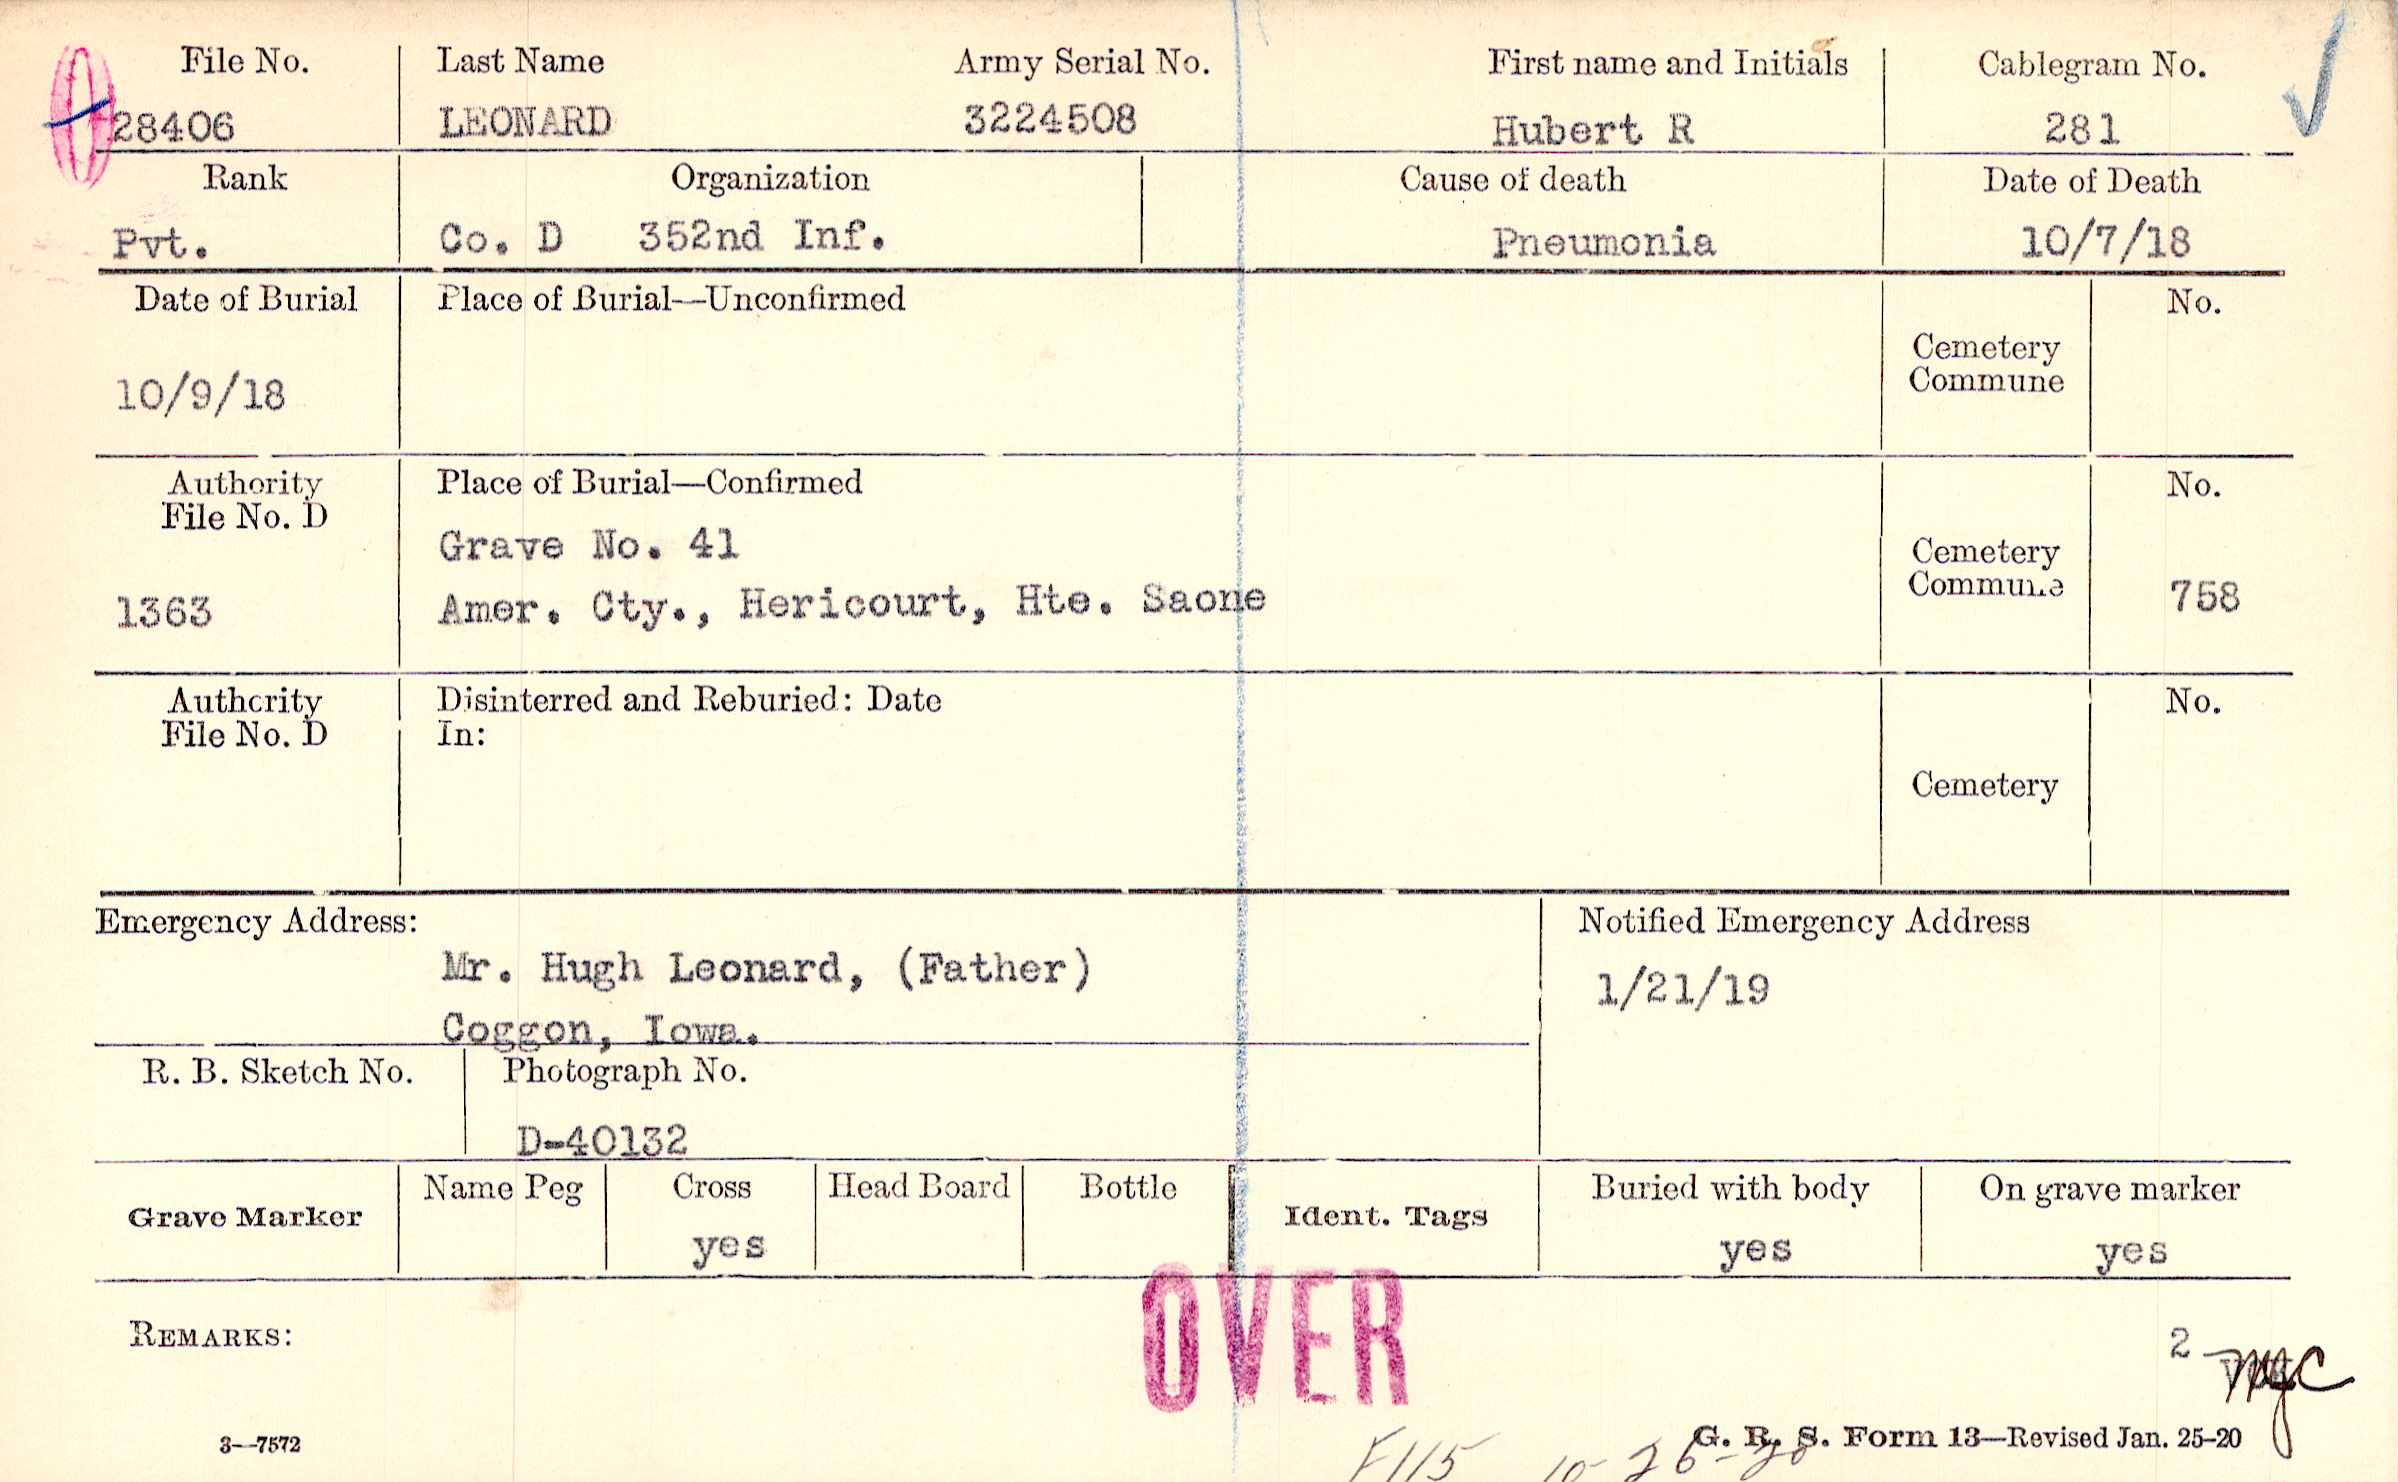 File No. Last Name Army Serial No. First name and Initials Cablegram No.
28406 LEONARD 3224508 Hubert R 281
Rank Organization Cause of death Date of Death
Pvt. Co. D 352nd Inf. Pneumonia 10/7/18
Date of Burial Place of Burial—Unconfirmed No.
Cemetery
Commune
10/9/18
Authority Place of Burial—Confirmed No.
File No. D
Grave No. 41
Cemetery
Commune
1363 Amer. Cty., Hericourt, Hte. Saone 758
Authority Disinterred and Reburied: Date No.
File No. D In:
Cemetery
Emergency Address: Notified Emergency Address
Mr. Hugh Leonard, (Father) 1/21/19
Coggon, Iowa.
R. B. Sketch No. Photograph No.
D-40132
Grave Marker Name Peg Cross Head Board Bottle Ident. Tags Buried with body On grave marker
yes yes yes
OVER
REMARKS: 2
3—7572 G. R. S. Form 13—Revised Jan. 25-20
10-26-20